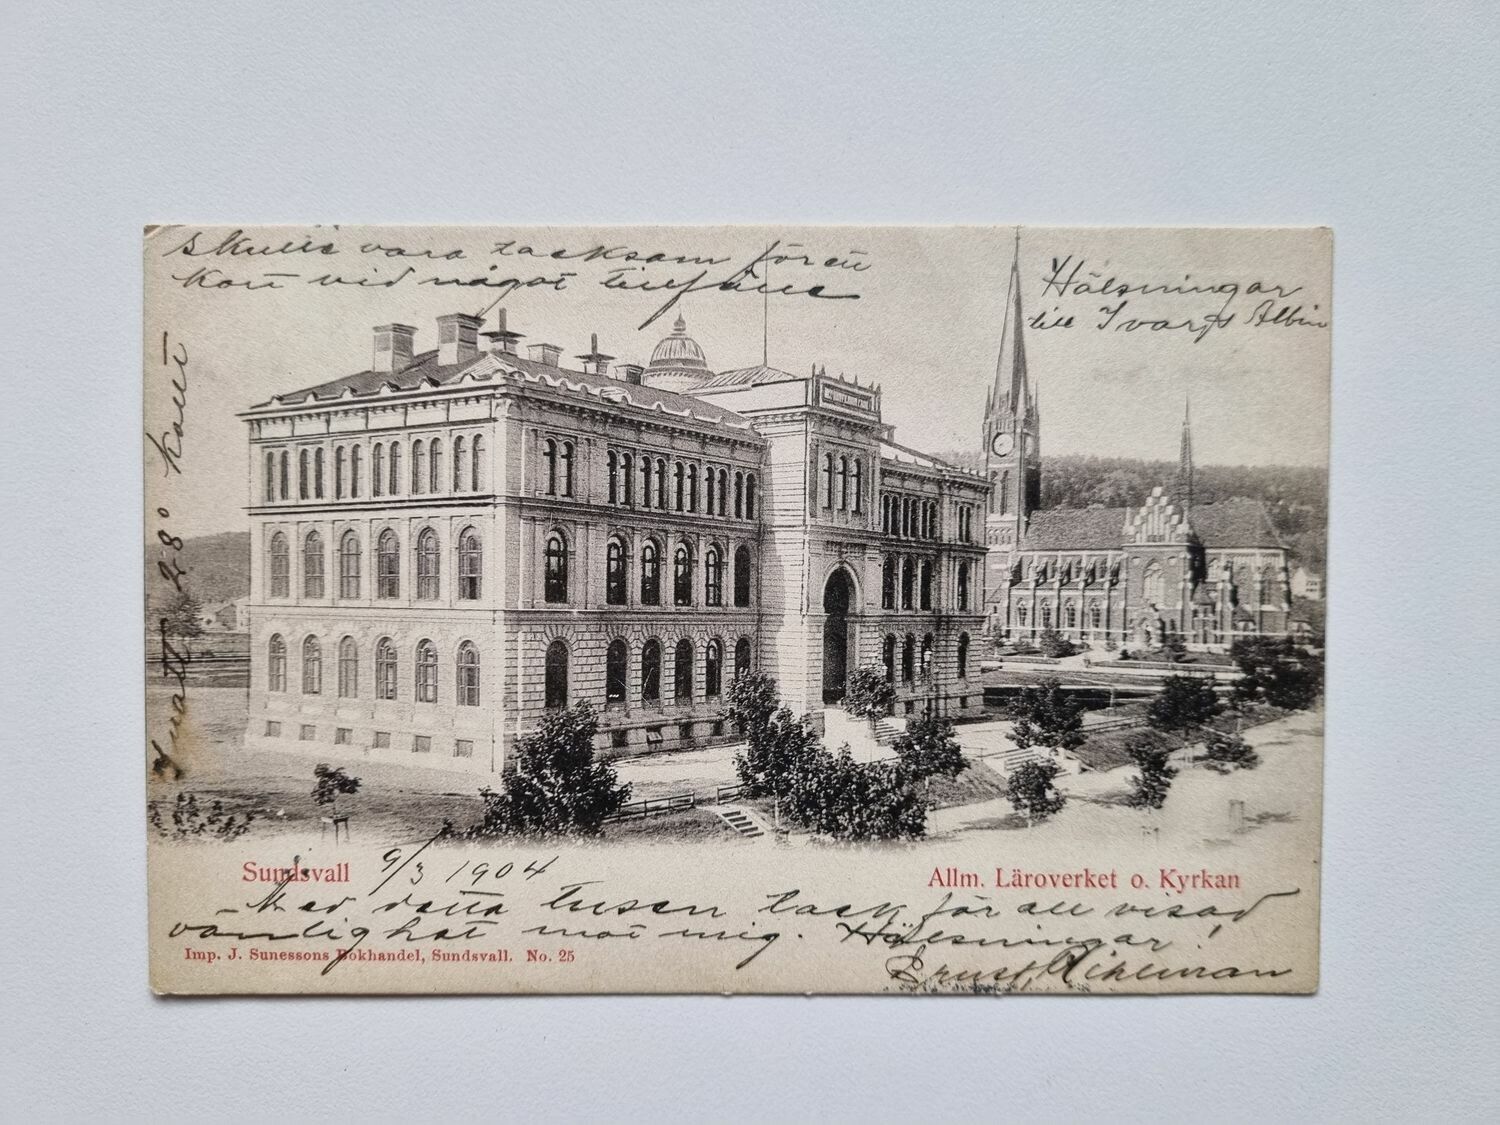 Skulle vara tacksam för ett
kort vid något tillfälle
Hälsningar
till Ivar, Albin
I natt 28° kallt
Sundsvall 9/3 1904
Allm. Läroverket o. Kyrkan
Med detta tusen tack för all visad
vänlighet mot mig. Hälsningar!
Imp. J. Sunessons Bokhandel, Sundsvall. No. 25
Ernst